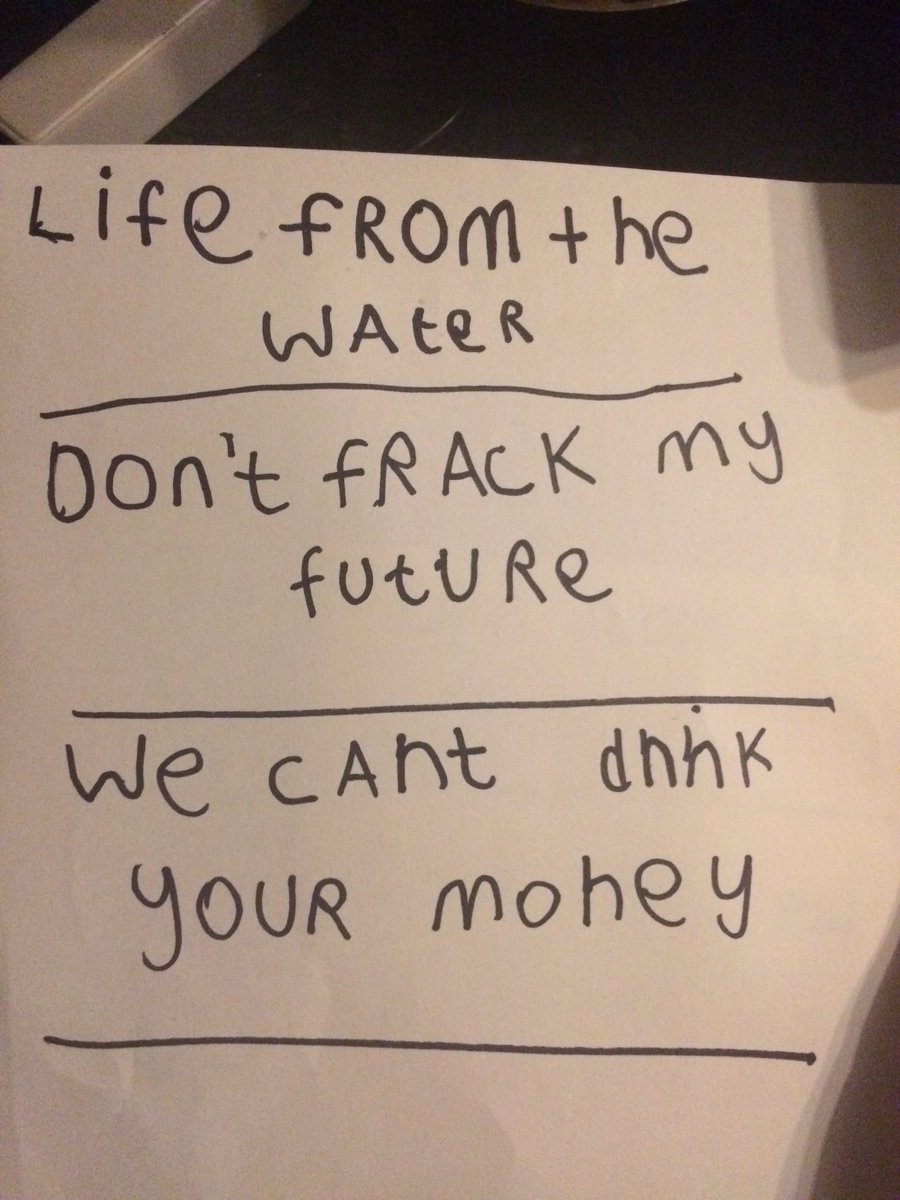 Life fROM the
WAteR
DOn't fRACK my
futURe
We CAnt drink
yOUR money